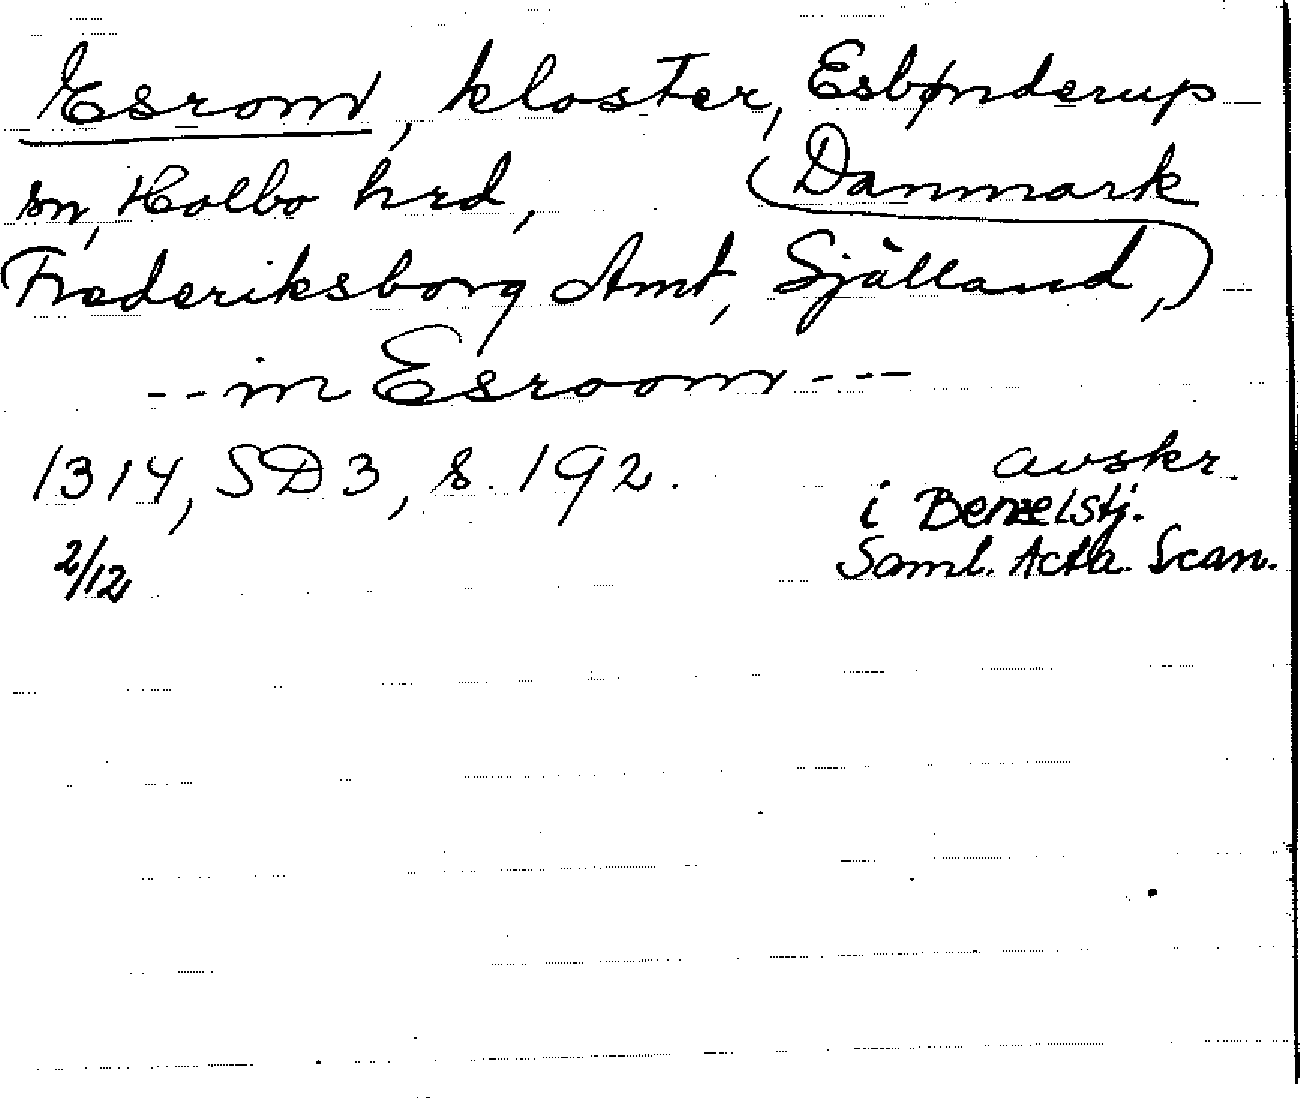 Esrom, kloster, Esbønderup
sn, Holbo hrd, (Danmark
Frederiksborg Amt, Själland,)
-- in Esroom ---
1314, SD 3, s. 192. avskr.
i Benzelstj.
2/12 Saml. Acta Scan.